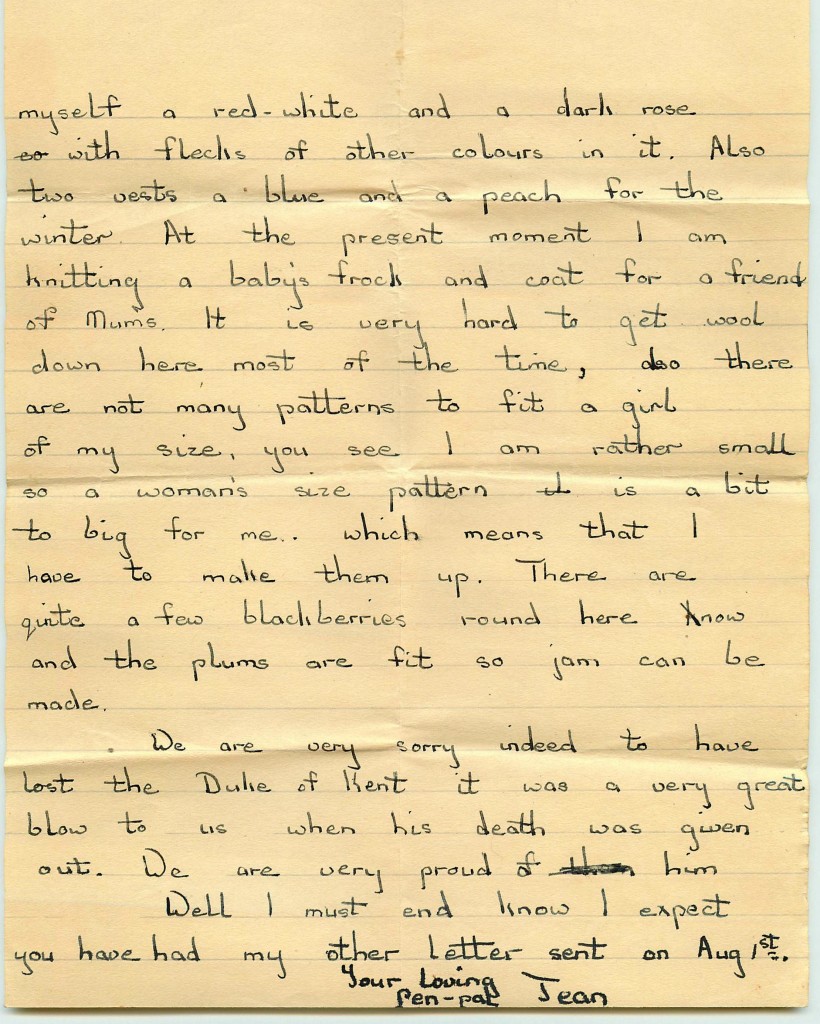 myself a red-white and a dark rose
so with flecks of other colours in it. Also
two vests a blue and a peach for the
winter. At the present moment I am
knitting a baby's frock and coat for a friend
of Mum's. It is very hard to get wool
down here most of the time, also there
are not many patterns to fit a girl
of my size, you see I am rather small
so a woman's size pattern is a bit
to big for me.. which means that I
have to make them up. There are
quite a few blackberries round here know
and the plums are fit so jam can be
made.
We are very sorry indeed to have
lost the Duke of Kent it was a very great
blow to us when his death was given
out. We are very proud of him
Well I must end know I expect
you have had my other letter sent on Aug 1st.
Your Loving
Pen-pal Jean